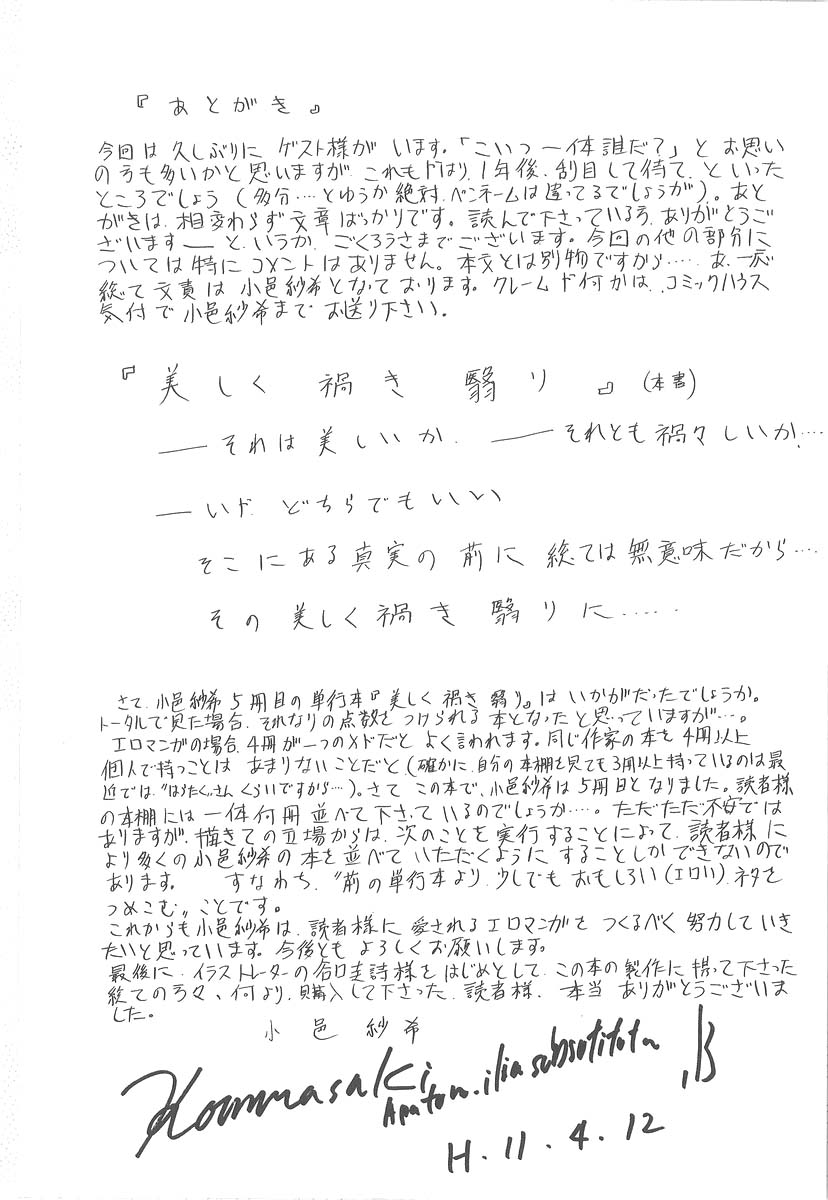 『あとがき』
今回は久しぶりに ゲスト様が います。「こいつ一体誰だ?」と お思い
の方も多いかと思いますが これもやはり、1年後、刮目して待て、といった
ところでしょう(多分‥‥とゆうか絶対、ペンネームは違ってるでしょうが)。あと
がきは、相変わらず文章ばっかりです。読んで下さっている方、ありがとうご
ざいます——と、いうか、ごくろうさまでございます。今回の他の部分に
ついては特にコメントはありません。本文とは別物ですから‥‥‥あ、一応
総て文責は小邑紗希となっております。クレームや何かは、コミックハウス
気付で小邑紗希まで お送り下さい。
『美しく 禍き 翳り』(本書)
——それは美しいか、——それとも禍々しいか、‥‥
——いや、どちらでもいい
そこにある真実の前に 総ては無意味だから‥‥
その 美しく禍き 翳りに‥‥‥
さて、小邑紗希5冊目の単行本『美しく禍き翳り』は いかがだったでしょうか。
トータルで見た場合、それなりの点数をつけられる本となったと思っていますが‥‥。
エロマンガの場合、4冊が一つのメドだと よく言われます。同じ作家の本を4冊以上
個人で持つことは あまりないことだと、(確かに、自分の本棚を見ても3冊以上持っているのは最
近では くらいですから‥‥)。さて この本で、小邑紗希は5冊目となりました。読者様
の本棚には一体何冊並べて下さっているのでしょうか‥‥。ただただ不安では
ありますが、描きての立場からは、次のことを実行することによって、読者様に
より多くの小邑紗希の本を並べて いただくように することしかできないので
あります。 すなわち、〝前の単行本より、少しでも おもしろい(エロい)ネタを
つめこむ〟ことです。
これからも小邑紗希は、読者様に 愛されるエロマンガを つくるべく 努力していき
たいと思っています。今後とも よろしくお願いします。
最後に、イラストレーターの 様をはじめとして、この本の製作に携って下さった
総ての方々、何より、購入して下さった、読者様、本当 ありがとうございま
した。
小邑紗希
H.11.4.12